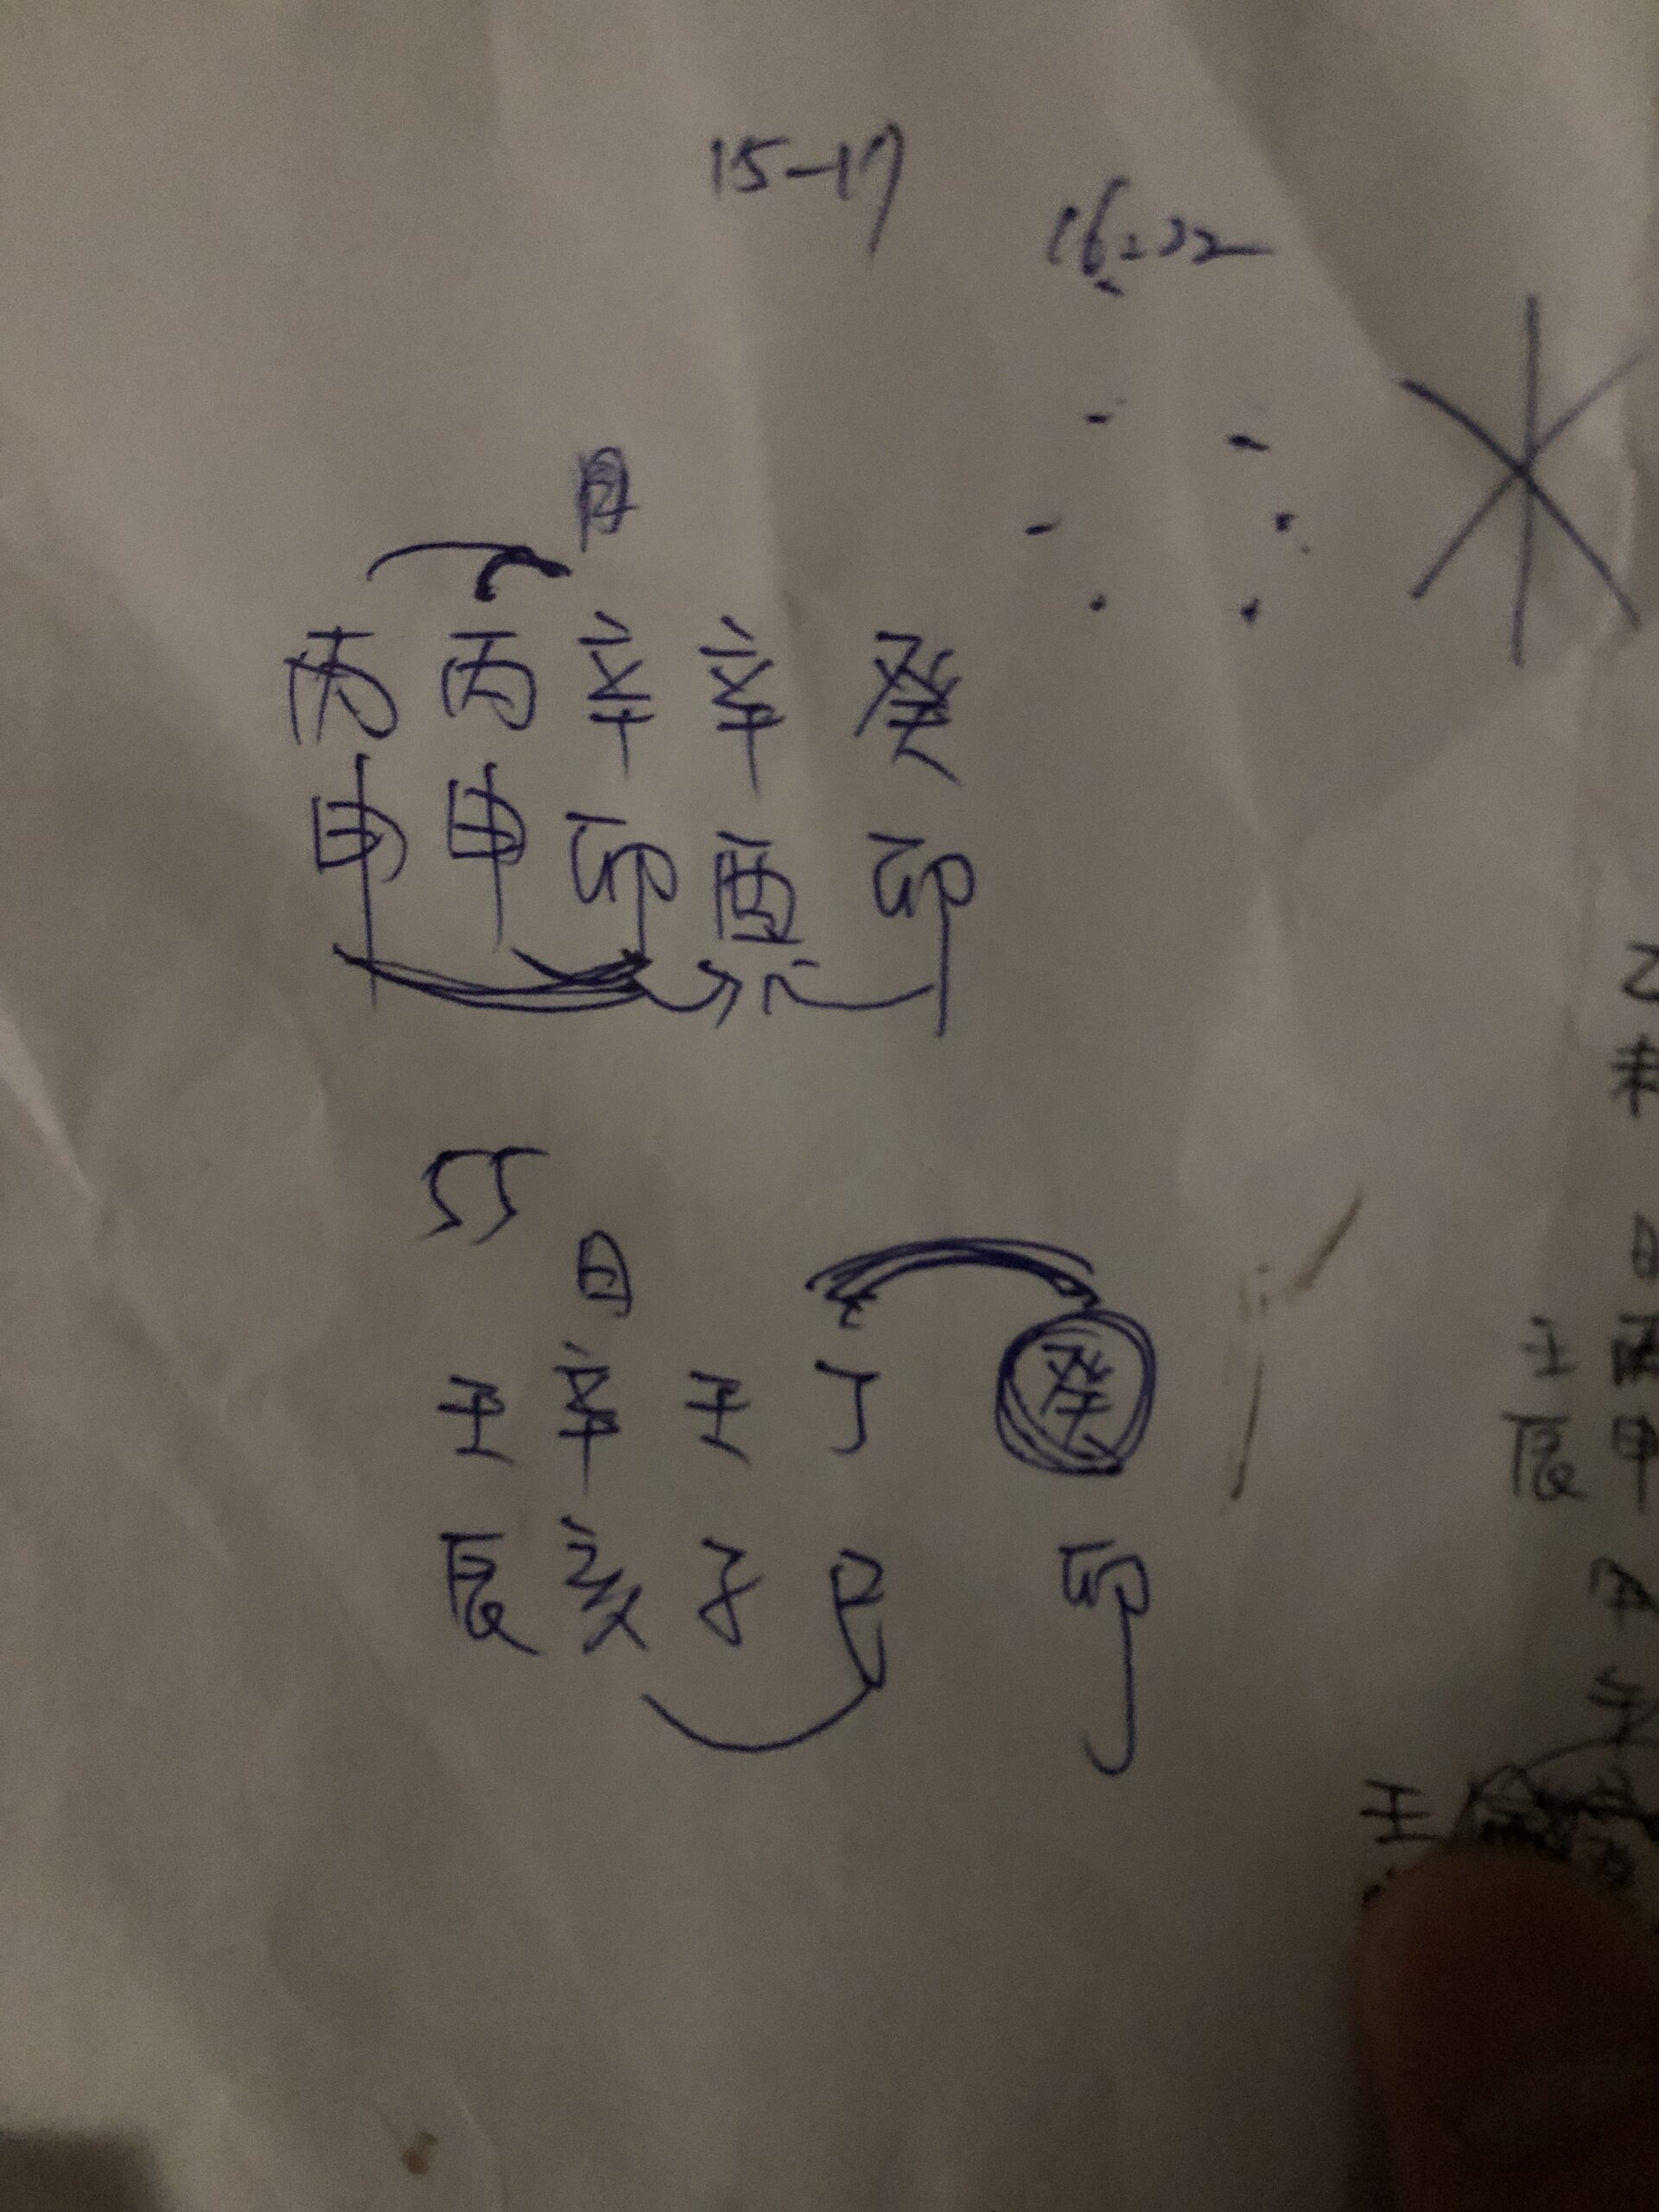 15-17
16:22
丙 丙 辛 辛 癸
申 申 卯 酉 卯
55
日
壬 辛 壬 丁 癸
辰 亥 子 巳 卯
乙
未
壬 丙
辰 申
壬